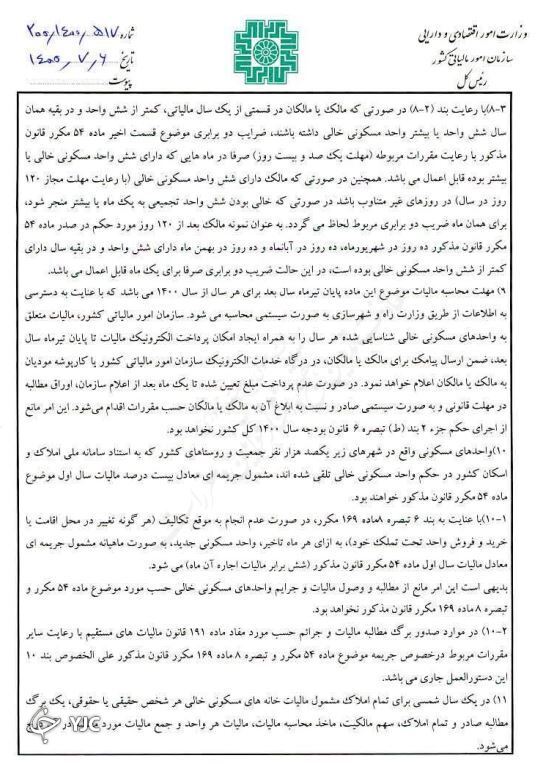 وزارت امور اقتصادی و دارایی
سازمان امور مالیاتی کشور
رئیس کل
شماره ۲۰۰/۱۴۰۰/۵۱۷
تاریخ ۱۴۰۰/۷/۶
پیوست
۸-۳)با رعایت بند (۲-۸) در صورتی که مالک یا مالکان در قسمتی از یک سال مالیاتی، کمتر از شش واحد و در بقیه همان
سال شش واحد یا بیشتر واحد مسکونی خالی داشته باشند، ضرایب دو برابری موضوع قسمت اخیر ماده ۵۴ مکرر قانون
مذکور با رعایت مقررات مربوطه (مهلت یک صد و بیست روز) صرفا در ماه هایی که دارای شش واحد مسکونی خالی یا
بیشتر بوده قابل اعمال می باشد. همچنین در صورتی که مالک دارای شش واحد مسکونی خالی (با رعایت مهلت مجاز ۱۲۰
روز در سال) در روزهای غیر متناوب باشد در صورتی که خالی بودن شش واحد تجمیعی به یک ماه یا بیشتر منجر شود،
برای همان ماه ضریب دو برابری مربوط لحاظ می گردد. به عنوان نمونه مالک بعد از ۱۲۰ روز مورد حکم در صدر ماده ۵۴
مکرر قانون مذکور ده روز در شهریورماه، ده روز در آبانماه و ده روز در بهمن ماه دارای شش واحد و در بقیه سال دارای
کمتر از شش واحد مسکونی خالی بوده است، در این حالت ضریب دو برابری صرفا برای یک ماه قابل اعمال می باشد.
۹) مهلت محاسبه مالیات موضوع این ماده پایان تیرماه سال بعد برای هر سال از سال ۱۴۰۰ می باشد که با عنایت به دسترسی
به اطلاعات از طریق وزارت راه و شهرسازی به صورت سیستمی محاسبه می شود. سازمان امور مالیاتی کشور، مالیات متعلق
به واحدهای مسکونی خالی شناسایی شده هر سال را به همراه ایجاد امکان پرداخت الکترونیک مالیات تا پایان تیرماه سال
بعد، ضمن ارسال پیامک برای مالک یا مالکان، در درگاه خدمات الکترونیک سازمان امور مالیاتی کشور یا کارپوشه مودیان
به مالک یا مالکان اعلام خواهد نمود. در صورت عدم پرداخت مبلغ تعیین شده تا یک ماه بعد از اعلام سازمان، اوراق مطالبه
در مهلت قانونی و به صورت سیستمی صادر و نسبت به ابلاغ آن به مالک یا مالکان حسب مقررات اقدام می‌شود. این امر مانع
از اجرای حکم جزء ۲ بند (ط) تبصره ۶ قانون بودجه سال ۱۴۰۰ کل کشور نخواهد بود.
۱۰)واحدهای مسکونی واقع در شهرهای زیر یکصد هزار نفر جمعیت و روستاهای کشور که به استناد سامانه ملی املاک و
اسکان کشور در حکم واحد مسکونی خالی تلقی شده اند، مشمول جریمه ای معادل بیست درصد مالیات سال اول موضوع
ماده ۵۴ مکرر قانون مذکور خواهند بود.
۱۰-۱)با عنایت به بند ۶ تبصره ۸ماده ۱۶۹ مکرر، در صورت عدم انجام به موقع تکالیف (هر گونه تغییر در محل اقامت یا
خرید و فروش واحد تحت تملک خود)، به ازای هر ماه تاخیر، واحد مسکونی جدید، به صورت ماهیانه مشمول جریمه ای
معادل مالیات سال اول ماده ۵۴ مکرر قانون مذکور (شش برابر مالیات اجاره آن ماه) می شود.
بدیهی است این امر مانع از مطالبه و وصول مالیات و جرایم واحدهای مسکونی خالی حسب مورد موضوع ماده ۵۴ مکرر و
تبصره ۸ ماده ۱۶۹ مکرر قانون مذکور نخواهد بود.
۱۰-۲) در موارد صدور برگ مطالبه مالیات و جرائم حسب مورد مفاد ماده ۱۹۱ قانون مالیات های مستقیم با رعایت سایر
مقررات مربوط درخصوص جریمه موضوع ماده ۵۴ مکرر و تبصره ۸ ماده ۱۶۹ مکرر قانون مذکور علی الخصوص بند ۱۰
این دستورالعمل جاری می باشد.
۱۱) در یک سال شمسی برای تمام املاک مشمول مالیات خانه های مسکونی خالی هر شخص حقیقی یا حقوقی، یک برگ
مطالبه صادر و تمام املاک، سهم مالکیت، ماخذ محاسبه مالیات، مالیات هر واحد و جمع مالیات مورد در
می‌شود.
YJC